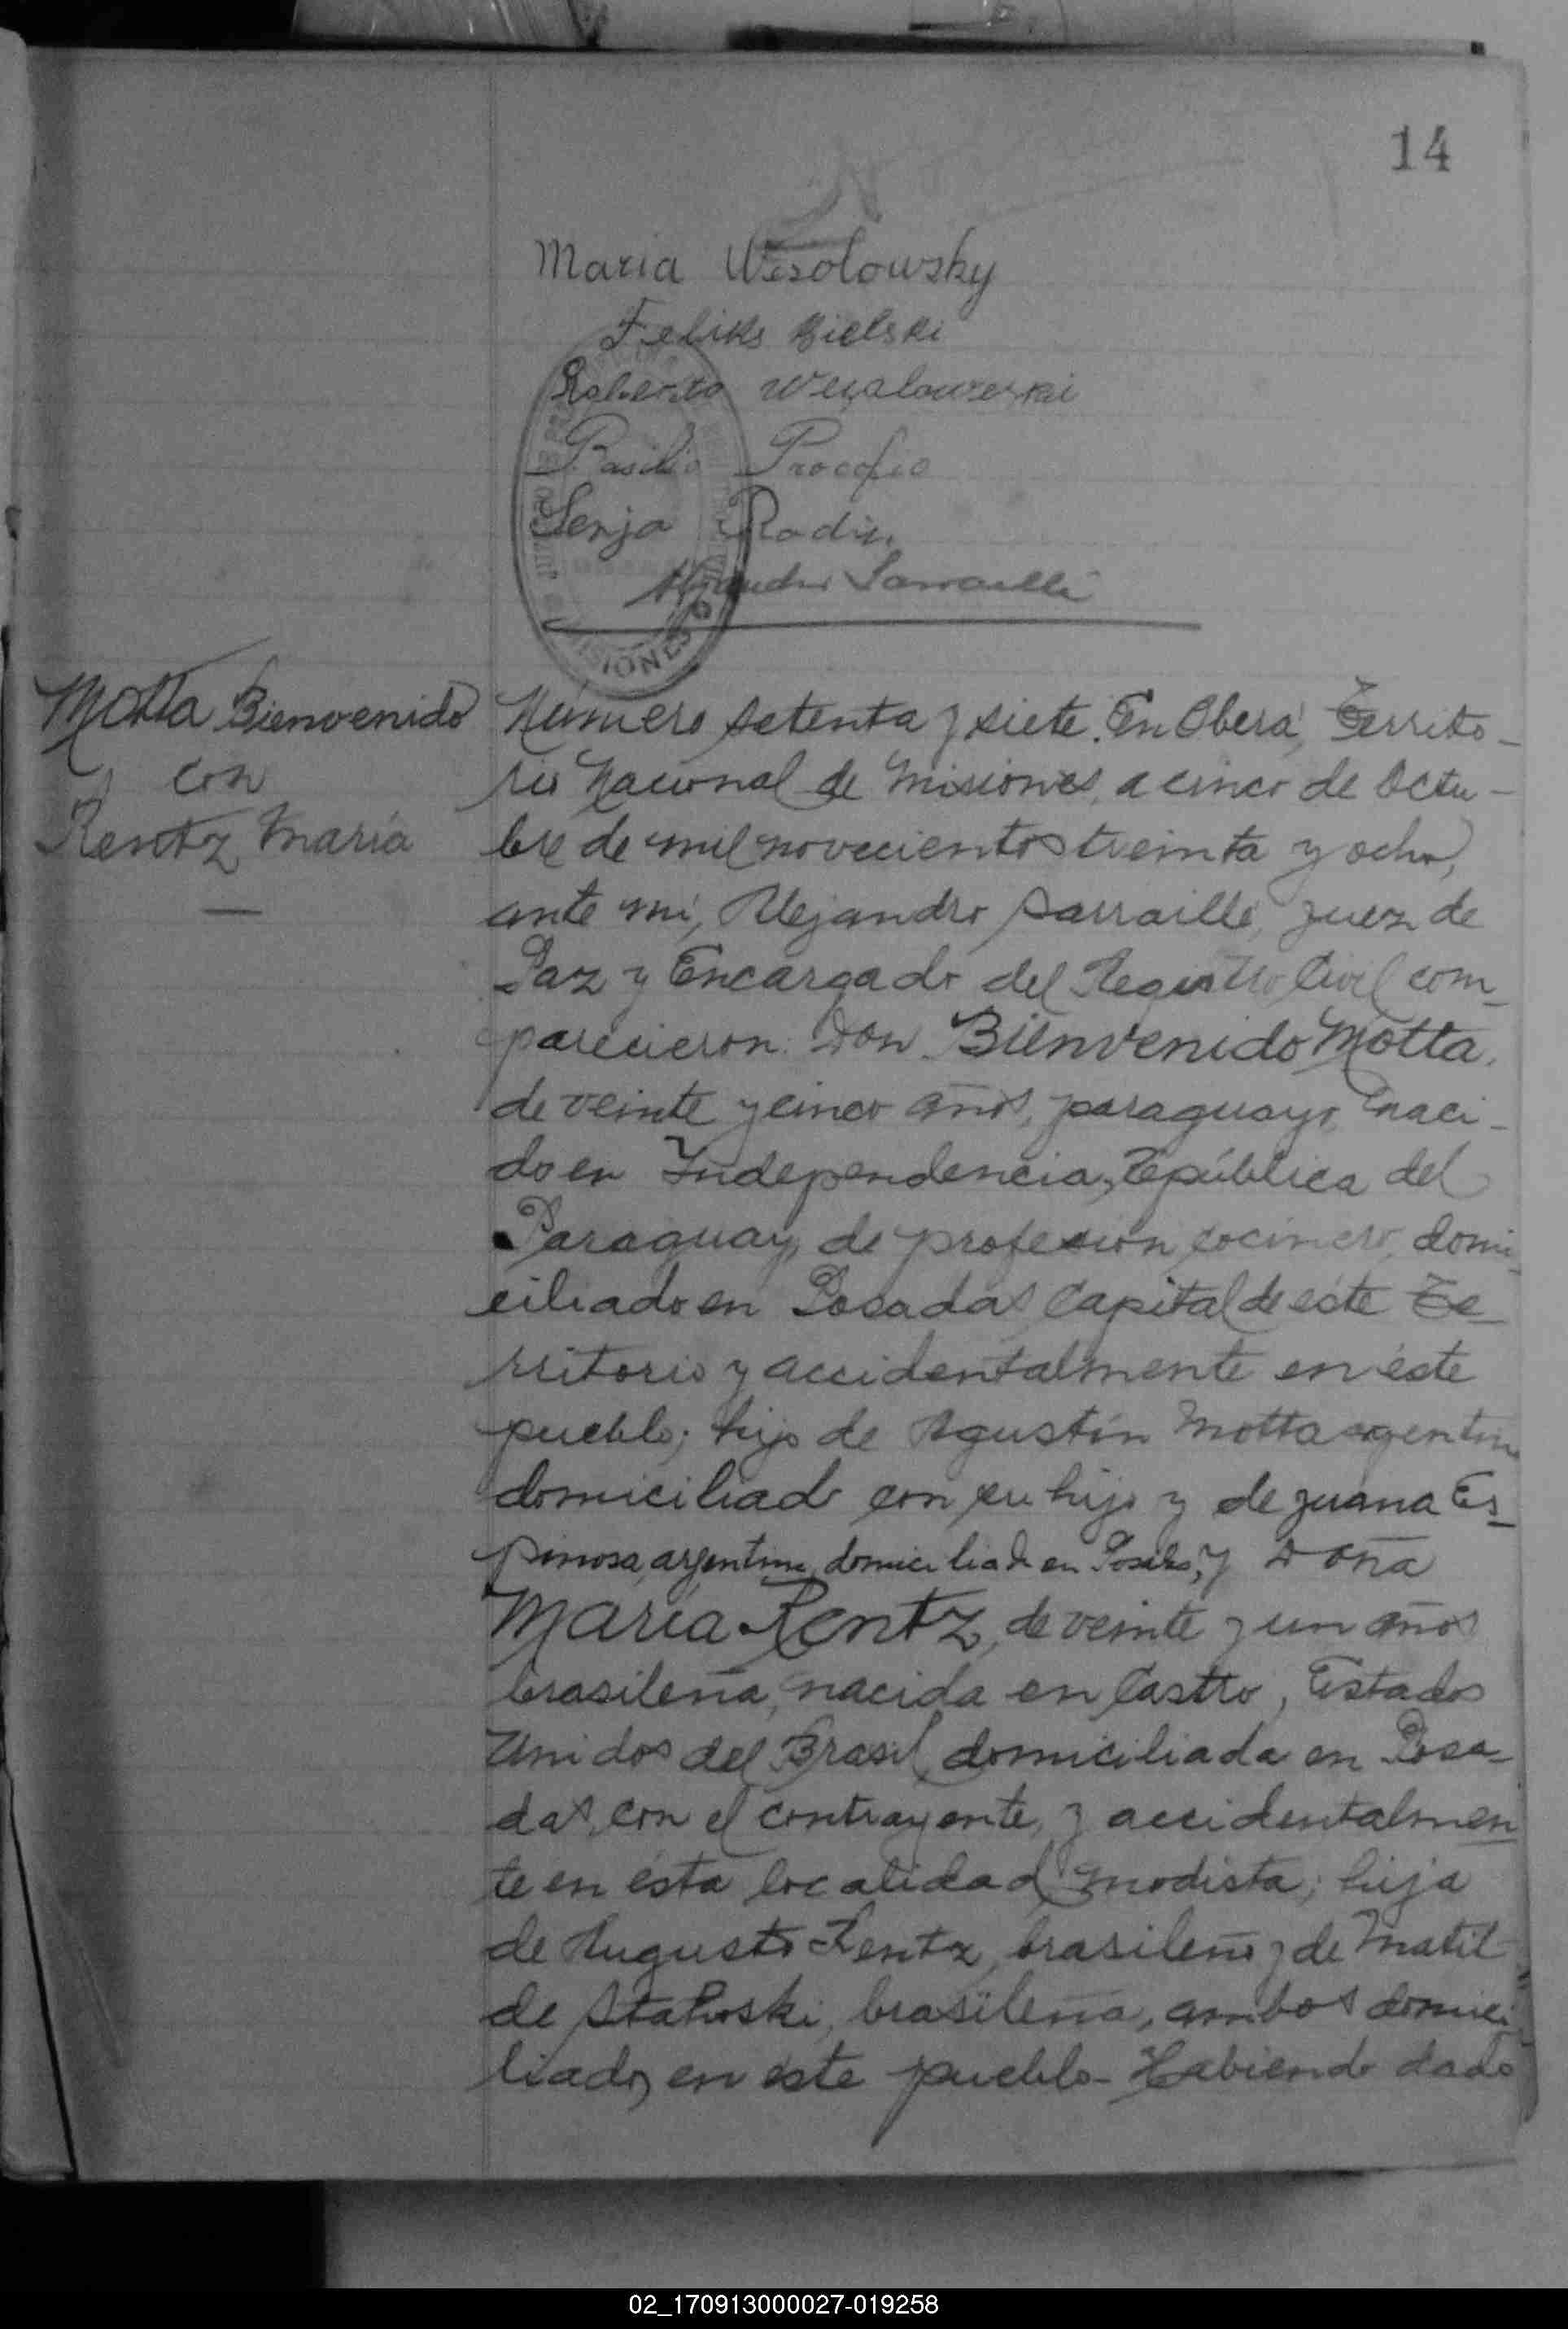 14
Maria Wesolowsky
Feliks Bielski
Roberto
Basilio Procofio
Senja Radis
Alejandro Sarraillé
MISIONES
Motta Bienvenido
con
Rentz María
Número setenta y siete. En Oberá, Territo-
rio Nacional de Misiones, a cinco de Octu-
bre de mil novecientos treinta y ocho,
ante mí, Alejandro Sarraillé, Juez de
Paz y Encargado del Registro Civil com-
parecieron: Don Bienvenido Motta,
de veinte y cinco años, paraguayo, naci-
do en Independencia, República del
Paraguay, de profesión cocinero, domi-
ciliado en Posadas Capital de éste Te-
rritorio y accidentalmente en éste
pueblo; hijo de Agustín Motta argentino
domiciliado con su hijo y de Juana Es-
pinosa, argentina, domiciliada en Posadas, y Doña
María Rentz, de veinte y un años
brasileña, nacida en Castro, Estados
Unidos del Brasil, domiciliada en Posa-
das, con el contrayente, y accidentalmen-
te en ésta localidad, modista; hija
de Augusto Rentz, brasileño y de Matil-
de brasileña, ambos domici-
liados en éste pueblo - Habiendo dado
02_170913000027-019258